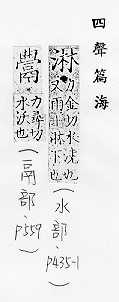 四聲篇海
淋 力金切水澆也
又雨淋淋下也
(水部、p435-1)
力尋切
水沃也
(鬲部、p559)